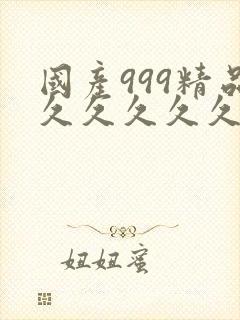 國産999精品
久久久久久
妞妞蜜